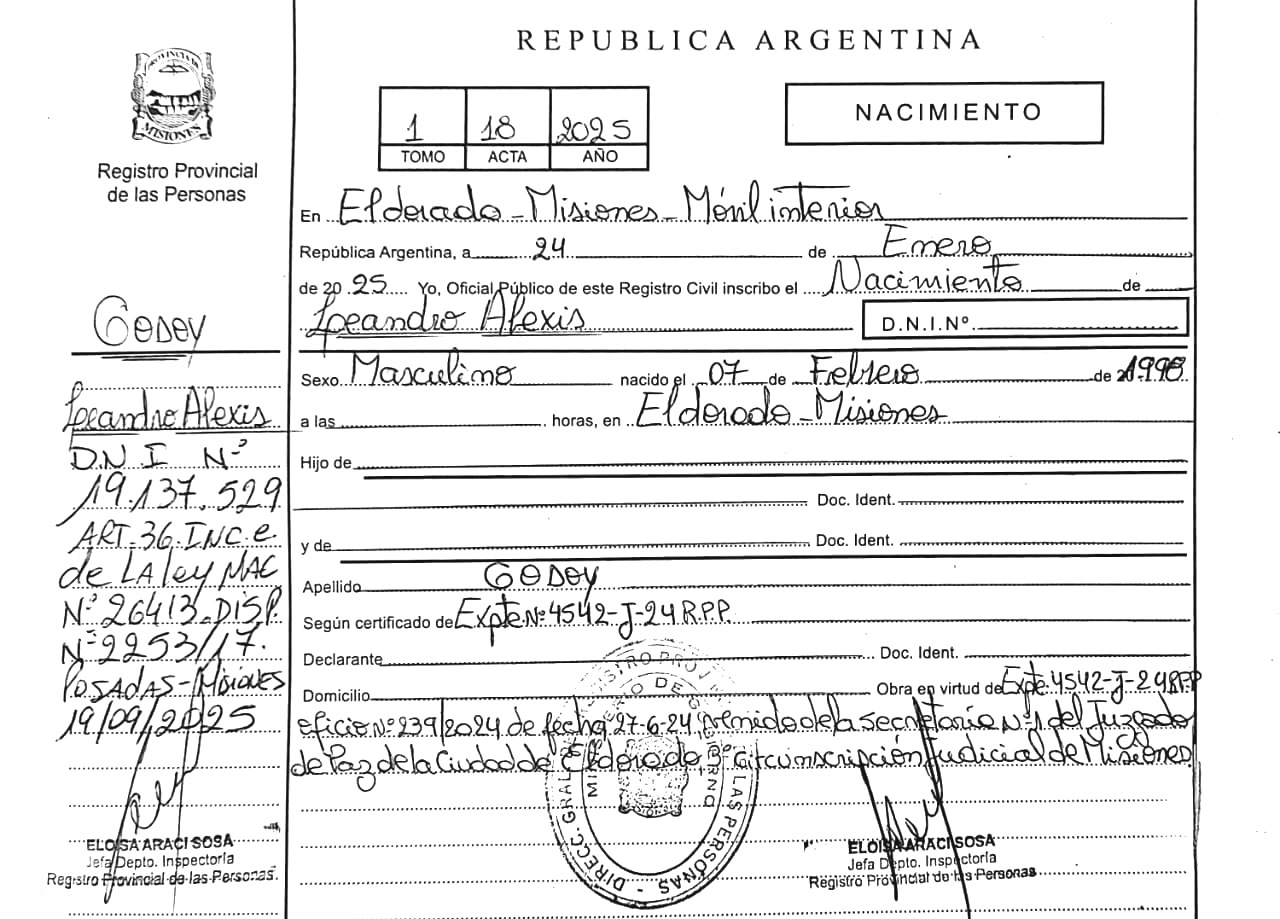 REPUBLICA ARGENTINA
PROVINCIA DE
MISIONES
Registro Provincial
de las Personas
1 18 2025
TOMO ACTA AÑO
NACIMIENTO
En Eldorado - Misiones - Móvil interior
República Argentina, a 24 de Enero
de 20 25 Yo, Oficial Público de este Registro Civil inscribo el Nacimiento de
Leandro Alexis D.N.I.Nº
Sexo Masculino nacido el 07 de Febrero de
a las horas, en Eldorado - Misiones
Hijo de
Doc. Ident.
y de Doc. Ident.
Apellido GODOY
Según certificado de Expte Nº 4542-J-24 R.P.P.
Declarante Doc. Ident.
Domicilio Obra en virtud de Expte. 4542-J-24 RPP
oficio Nº 239/2024 de fecha 27-6-24, de la secretaría Nº 1 del Juzgado
de Paz de la Ciudad de Eldorado, circunscripción Judicial de Misiones
GODOY
Leandro Alexis
D.N I Nº
19.137.529
ART. 36. INC. e
de LA ley MAC
Nº 26413. DISP.
Nº 2253/17.
POSADAS - Misiones
19/09/2025
ELOISA ARACI SOSA
Jefa Depto. Inspectoría
Registro Provincial de las Personas.
DIRECC. GRAL. LAS PERSONAS
ELOISA ARACI SOSA
Jefa Depto. Inspectoría
Registro Provincial de las Personas